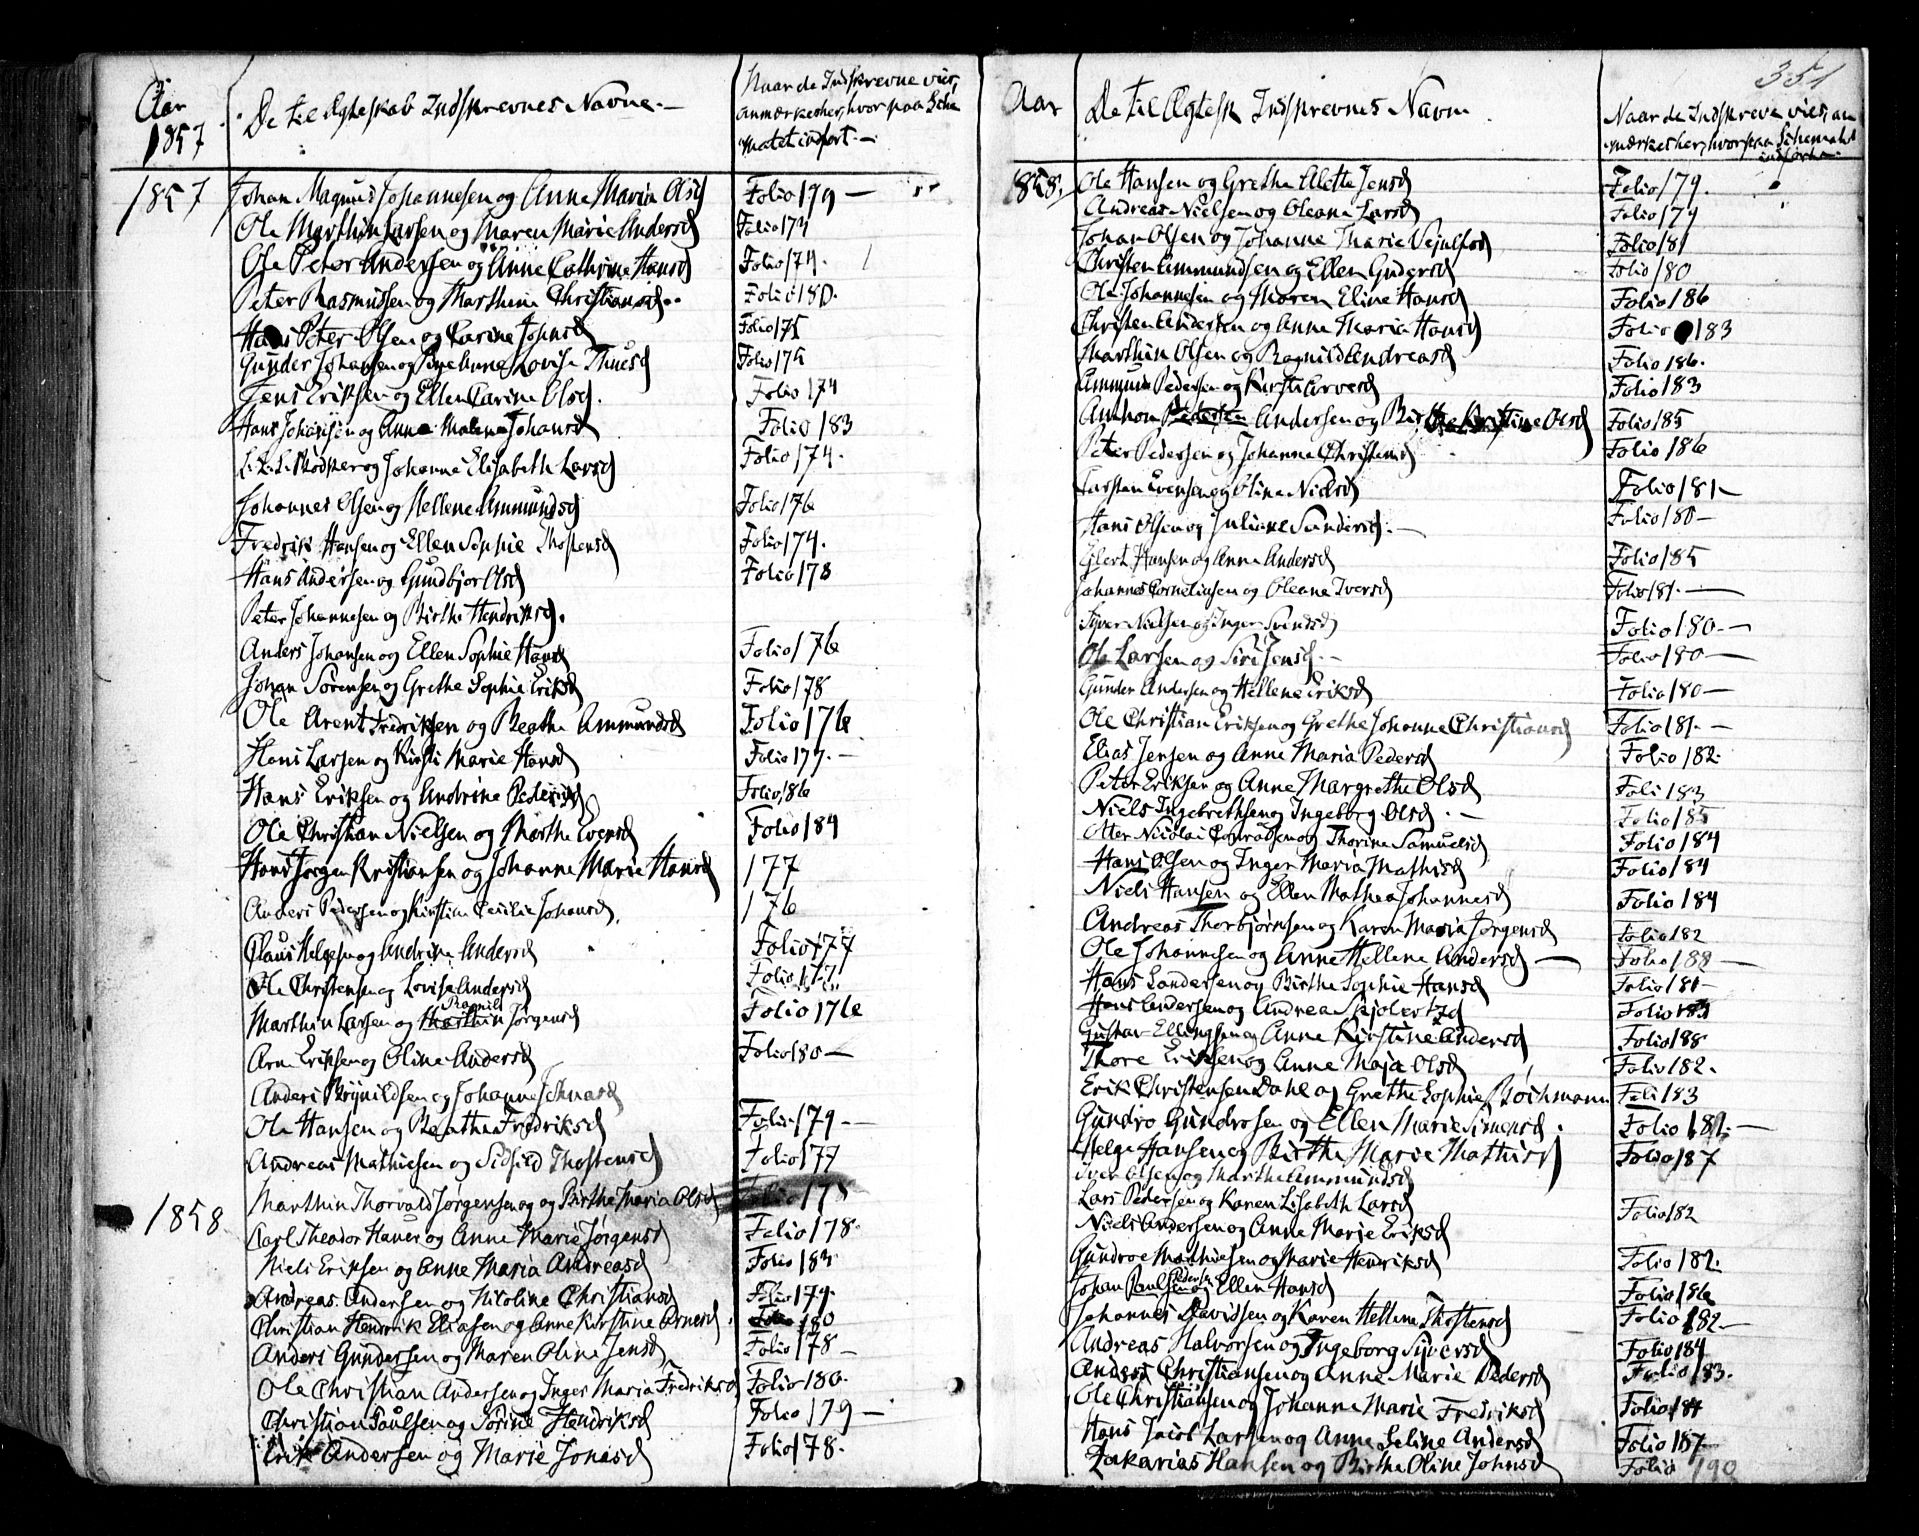 Aar
1857
De til Ægteskab Indskrevnes Navne.—
Naar de Indskrevne vies,
anmærkes her, hvor paa Sche
matet indført.—
1857 Johan Magnus Johannesen og Anne Maria Olsd Folio 179 —
Ole Marthin Larsen og Maren Marie Andersd Folio 174
Ole Peter Andersen og Anne Cathrine Hansd Folio 174.
Peter Rasmussen og Marthine Christiansd.. Folio 180.
Hans Peter Olsen og Carine Johnsd Folio 175
Gunder Johansen og Anne Lovise Thuesd Folio 175
Jens Eriksen og Ellen Carine Olsd. Folio 174
Hans Johansen og Anne Malene Johansd Folio 183
og Johanne Elisabeth Larsd Folio 174.
Johannes Olsen og Hellene Ammundsd Folio 176
Fredrik Hansen og Ellen Sophie Thostensd Folio 174.
Hans Andersen og Gundbjor Olsd Folio 178
Peter Johannesen og Birthe Hendriksd.
Anders Johansen og Ellen Sophie Hansd Folio 176
Johan Sørensen og Grethe Sophie Eriksd Folio 178
Ole Arent Fredriksen og Beathe Ammundsd Folio 176
Hans Larsen og Kirsti Marie Hansd Folio 177. —
Hans Eriksen og Andrine Pedersd Folio 186
Ole Christian Nielsen og Marthe Evensd Folio 184
Hans Jørgen Kristiansen og Johanne Marie Hansd 177
Anders Pedersen og Kirstine Cecilie Johansd. 176
Claus Helgesen og Andrine Andersd Folio 177
Ole Christensen og Lovise Andersd Folio 177.
Ragnil
Marthin Larsen og Marthin Jørgensd Folio 176
Arn Eriksen og Oline Andersd Folio 180 —
Anders Brynildsen og Johanne
Ole Hansen og Beathe Fredriksd Folio 179 —
Andreas Mathiesen og Sidsild Thostensd Folio 177
1858 Marthin Thorvald Jørgensen og Birthe Maria Olsd Folio 178
Carl Theodor Hauer og Anne Marie Jørgensd Folio 178.
Niels Eriksen og Anne Maria Andreasd Folio 183
Andreas Andersen og Nicoline Christiansd Folio 179.
Christian Hendrik Eliasen og Anne Kirstine Arnesd. Folio 180
Anders Gundersen og Maren Oline Jensd Folio 178 —
Ole Christian Andersen og Inger Maria Fredriksd Folio 180.
Christian Paulsen og Sørine Hendriksd Folio 179 —
Erik Andersen og Marie Jonasd Folio 178.
351
Aar
De til Ægtesk Indskrevnes Navne
Naar de Indskreve vies, an
mærkes her, hvor paa Schematet
indførte.
1858. Ole Hansen og Grethe Elette Jensd Folio 179.
Andreas Nielsen og Oleane Larsd Folio 179
Johan Olsen og Johanne Marie Vejulfsd Folio 181
Christen Ammundsen og Ellen Gudersd Folio 180
Ole Johannesen og Maren Eline Hansd Folio 186
Christen Andersen og Anne Maria Hansd Folio 183
Marthin Olsen og Ragnild Andreasd Folio 186.
Ammun Pedersen og Kirsti Corvesd Folio 183
Anthon Pedersen Andersen og Birthe Kirstine Olsd Folio 185
Peter Pedersen og Johanne Christensd Folio 186
Carsten Evensen og Oline Nielsd Folio 181 —
Hans Olsen og Juliane Sandersd. — Folio 180 —
Glert Hansen og Anne Andersd Folio 185
Johannes Corneliusen og Oleane Iversd Folio 181. —
Syver Nielsen og Inger Svendsd Folio 180. —
Ole Larsen og Siri Jensd. — Folio 180 —
Gunder Andersen og Hellene Eriksd Folio 180 —
Ole Christian Eriksen og Grethe Johanne Christiansd Folio 181. —
Elias Jensen og Anne Maria Pedersd Folio 182.
Peter Eriksen og Anne Margrethe Olsd Foli 183
Niels Ingebrethsen og Ingeborg Olsd. — Folio 185
Otter Nicolai Conradsen og Thorine Samuelsd Folio 184
Hans Olsen og Inger Maria Mathisd Folio 184
Niels Hansen og Ellen Mathea Johannesd Folio 184
Andreas Thorbjørnsen og Karen Maria Jørgensd Folio 182
Ole Johannesen og Anne Hellene Andersd — Folio 188 —
Hans Sandersen og Birthe Sophie Hansd Folio 181 —
Hans Andersen og Andrea Skjolertzd Folio 183
Gustav Ellingsen og Anne Kirstine Andersd Folio 188
Thore Eriksen og Anne Maja Olsd Folio 182.
Erik Christensen Dahl og Grethe Sophie Böichmann Foli 183
Gundro Gundrosen og Ellen Marie Simensd. Folio 181. —
Helge Hansen og Birthe Marie Mathisd Folio 187
Iver Olsen og Marthe Ammundsd
Lars Pedersen og Karen Lisabeth Larsd Folio 182
Niels Andersen og Anne Marie Eriksd
Gundroe Mathiesen og Marie Henriksd Folio 182.
Pedersen
Johan Paulsen og Ellen Hansd Folio 186
Johannes Davidsen og Karen Hellene Thostensd Folio 182 —
Andreas Halvorsen og Ingeborg Syversd Folio 184
Anders Christiansen og Anne Marie Pedersd Folio 183.
Ole Christiansen og Johanne Marie Fredriksd Folio 184
Hans Jacob Larsen og Anne Seline Andersd Folio 187
Zakarias Hansen og Birthe Oline Johnsd Folio 190